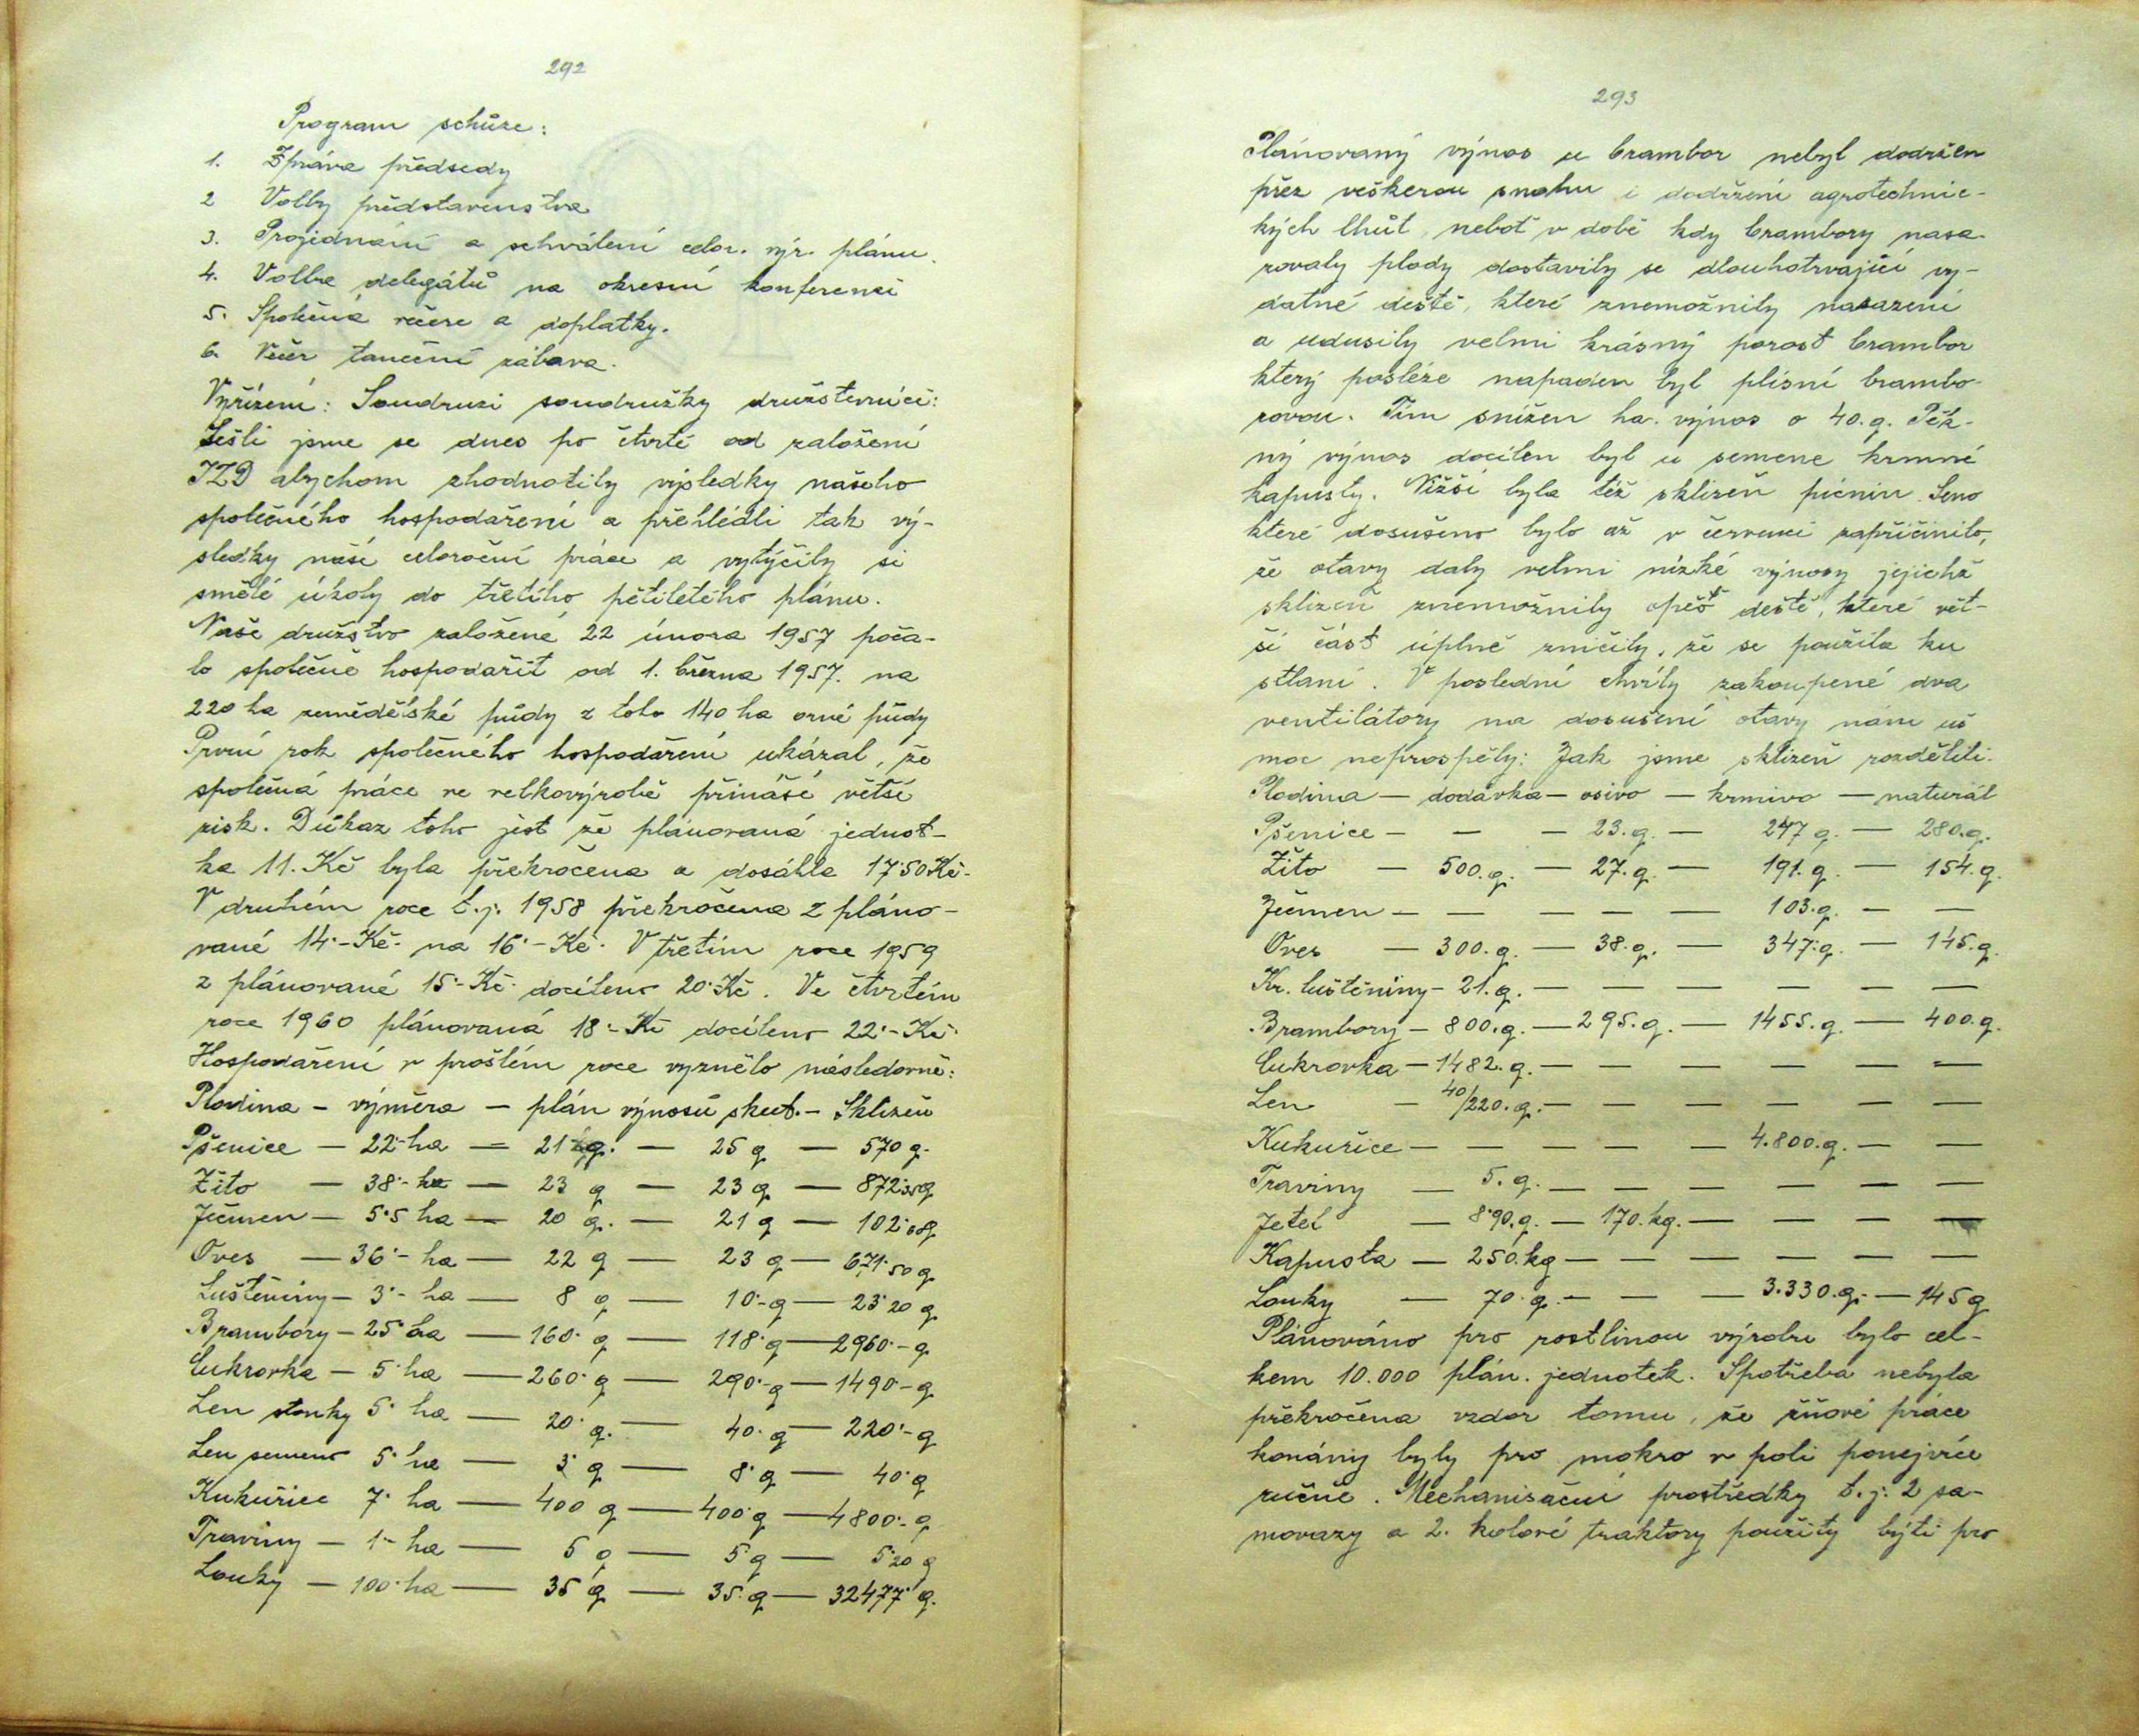 292
Program schůze:
1. Zpráva předsedy
2 Volby představenstva
3. Projednání a schválení celor. výr. plánu.
4. Volba delegátů na okresní konferenci
5. Společná večeře a doplatky.
6. Večer taneční zábava.
Vyřízení: Soudruzi soudružky družstevníci:
Sešli jsme se dnes po čtvrté od založení
JZD abychom zhodnotily výsledky našeho
společného hospodaření a přehlédli tak vý-
sledky naší celoroční práce a vytýčily si
smělé úkoly do třetího pětiletého plánu.
Naše družstvo založené 22 února 1957 poča-
lo společně hospodařit od 1. března 1957. na
220 ha zemědělské půdy z toho 140 ha orné půdy
První rok společného hospodaření ukázal, že
společná práce ve velkovýrobě přináší větší
zisk. Důkaz toho jest že plánovaná jednot-
ka 11. Kč byla překročena a dosáhla 17·50 Kč.
V druhém roce t.j. 1958 překročena z pláno-
vané 14·- Kč· na 16·- Kč· V třetím roce 1959
z plánované 15·- Kč· docíleno 20· Kč. Ve čtvrtém
roce 1960 plánovaná 18·- Kč docíleno 22·- Kč·
Hospodaření v prošlém roce vyznělo následovně:
Plodina - výměra - plán výnosů skut. - Sklizeň
Pšenice — 22·- ha — 21 q. — 25 q — 570 q.
Žito — 38·- ha — 23 q — 23 q — 872·35 q
Ječmen — 5·5 ha — 20 q. — 21 q — 102·68 q
Oves — 36·- ha — 22 q — 23 q — 671·50 q
Luštěniny — 3·- ha — 8 q — 10·- q — 23·20 q
Brambory — 25· ha — 160· q — 118· q — 2960·- q
Cukrovka — 5· ha — 260· q — 290·- q — 1490·- q
Len stonky 5· ha — 20· q. — 40· q — 220·- q
Len semeno 5· ha — 3· q — 8· q — 40· q
Kukuřice 7· ha — 400 q — 400· q — 4800·- q
Traviny — 1·- ha — 5 q — 5· q — 5·20 q
Louky — 100· ha — 35 q — 35· q — 32477· q.
293
Plánovaný výnos u brambor nebyl dodržen
přez veškerou snahu i dodržení agrotechnic-
kých lhůt, neboť v době kdy brambory nasa-
zovaly plody dostavily se dlouhotrvající vy-
datné deště, které znemožnily nasazení
a udusily velmi krásný porost brambor
který posléze napaden byl plísní brambo-
rovou. Tím snížen ha. výnos o 40. q. Pěk-
ný výnos docílen byl u semene krmné
kapusty. Nižší byla též sklizeň pícnin. Seno
které dosušeno bylo až v červenci zapříčinilo,
že otavy daly velmi nízké výnosy jejichž
sklizeň znemožnily opěť deště, které vět-
ší část úplně zničily, že se použila ku
stlaní. V poslední chvíly zakoupené dva
ventilátory na dosušení otavy nám už
moc neprospěly: Jak jsme sklizeň rozdělili.
Plodina — dodávka — osivo — krmivo — naturál
Pšenice — — — 23. q. — 247 q. — 280. q.
Žito — 500. q. — 27. q. — 191. q. — 154. q.
Ječmen — — — — — 103. q. — —
Oves — 300. q. — 38. q. — 347. q. — 145. q.
Kr. luštěniny — 21. q. — — — — — —
Brambory — 800. q. — 295. q. — 1455. q. — 400. q.
Cukrovka — 1482. q. — — — — — —
Len — 40/220. q. — — — — — —
Kukuřice — — — — — 4.800. q. — —
Traviny — 5. q. — — — — — —
Jetel — 8·90. q. — 170. kg. — — — —
Kapusta — 250. kg — — — — — —
Louky — 70· q. — — — 3.330. q. — 145 q
Plánováno pro rostlinou výrobu bylo cel-
kem 10.000 plán. jednotek. Spotřeba nebyla
překročena vzdor tomu, že žňové práce
konány byly pro mokro v poli ponejvíce
ručně. Mechanisační prostředky t.j. 2 sa-
movazy a 2. kolové traktory použity býti pro